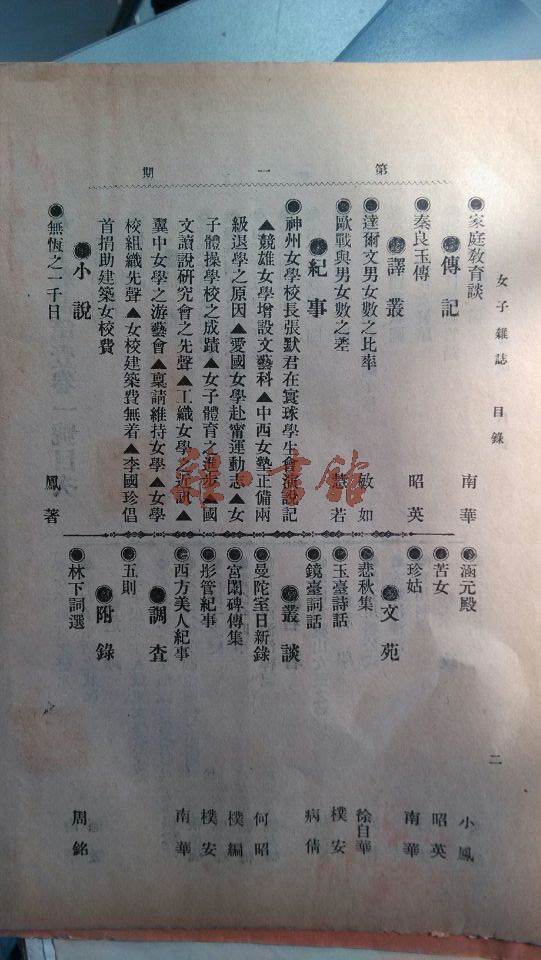 女子雜誌 目錄
二
第一期
●家庭教育談 南華
●傳記
●秦良玉傳 昭英
●譯叢
●達爾文男女數之比率 敏如
●歐戰與男女數之差 慧若
●紀事
●神州女學校長張默君在寰球學生會演說記
▲競雄女學增設文藝科▲中西女塾正備兩
級退學之原因▲愛國女學赴甯運動志▲女
子體操學校之成蹟▲女子體育之進步▲國
文讀說研究會之先聲▲工織女學之近訊▲
翼中女學之游藝會▲稟請維持女學▲女學
校組織先聲▲女校建築費無着▲李國珍倡
首捐助建築女校費
●小說
●無恆之一千日 鳳著
●涵元殿 小鳳
●苦女 昭英
●珍姑 南華
●文苑
●悲秋集 徐自華
●玉臺詩話 樸安
●鏡臺詞話 病倩
●叢談
●曼陀室日新錄 何昭
●宮閨碑傳集 樸編
●彤管紀事 樸安
●西方美人紀事 南華
●調查
●五則
●附錄
●林下詞選 周銘